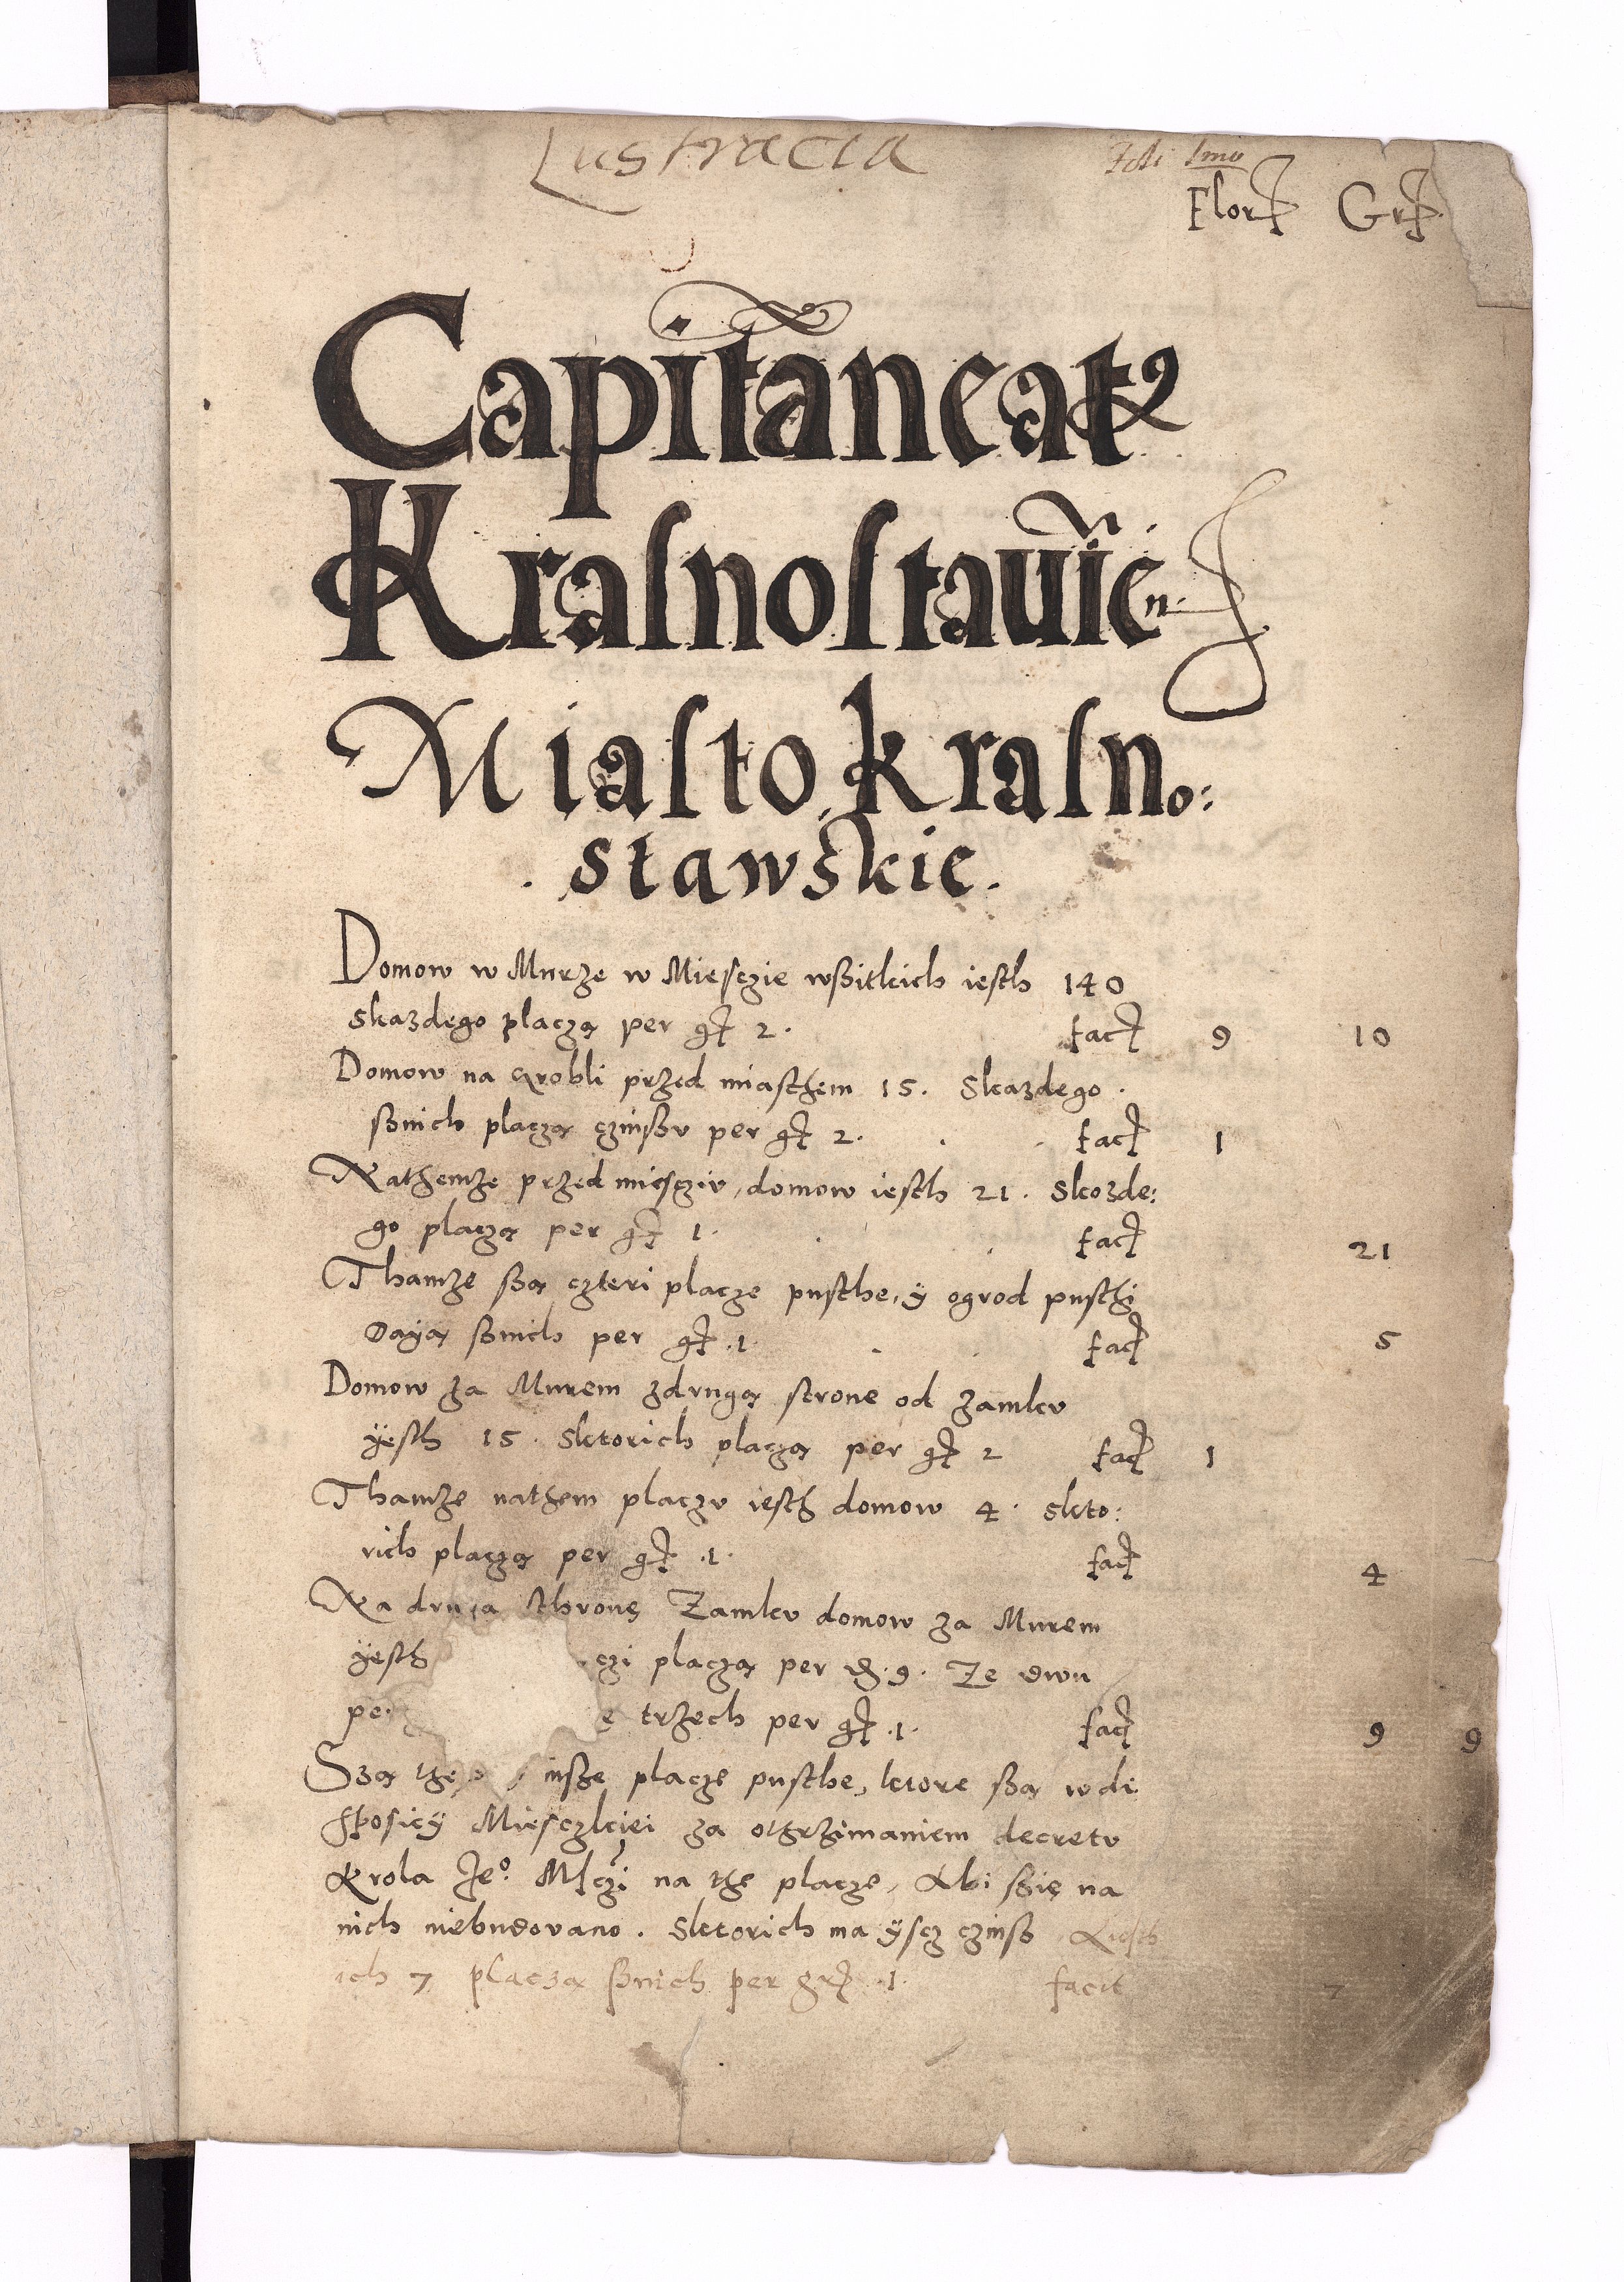 Lustracia
Flor Gr
Capitaneat9
Krasnostauien
Miasto krasno:
stawskie.
Domow w Murze w Miesczie wßitkich iesth 140
skazdego placzą per gr 2. fact 9 10
Domow na Grobli przed miasthem 15. Skazdego
ßnich placzą czinßv per gr 2. fact 1
Nathemze przed miesciv, domow iesth 21. Skozde:
go placzą per gr 1. fact 21
Thamze ßą czteri placze pusthe, y ogrod pusthi
Dayą ßnich per gr .1. fact 5
Domow za Murem zdrugą strone od zamkv
yesth 15. Sktorich placzą per gr 2 fact 1
Thamze nathem placzv iesth domow 4. skto:
rich placzą per gr .1. fact 4
Na druga sthronę Zamkv domow za Murem
yesth czi placzą per d. 9. Ze dwu
pe trzech per gr .1. fact 9 9
Szą insze placze pusthe, ktore ßą w di
sposicy Miesczkiei za otrzimaniem decretv
Krola Je⁰. Mczi na the placze, Abi ßię na
nich niebudovano. Sktorich ma yscz czinß Aiesth
ich 7 placzą ßnich per gr .1. facit 7